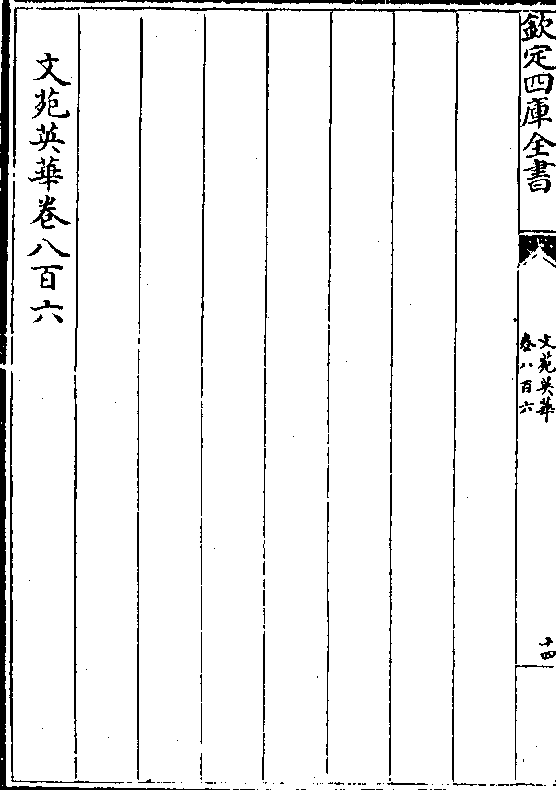 欽定四庫全書
文苑英華
卷八百六
十四
文苑英華卷八百六